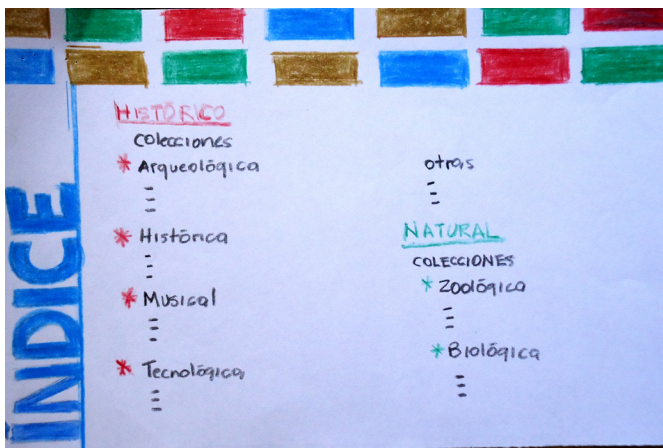 ÍNDICE
HISTÓRICO
Colecciones
* Arqueológica
-
-
-
* Histórica
-
-
-
* Musical
-
-
-
* Tecnológica
-
-
-
otras
-
-
-
NATURAL
COLECCIONES
* Zoológica
-
-
-
* Biológica
-
-
-